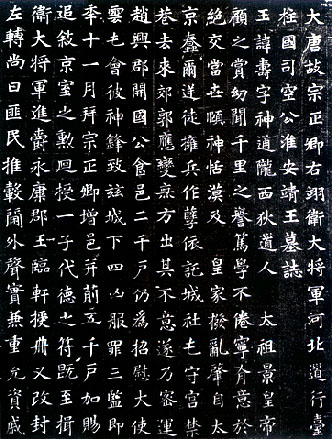 大唐故宗正卿右翊衛大將軍河北道行臺
柱國司空公淮安靖王墓誌
王諱壽字神通隴西狄道人 太祖景皇帝
顧之賞幼聞千里之譽篤學不倦寧肯意於
絕交當世頤神恬漠及 皇家撥亂聲自太
京徒擁兵作孽依託城社屯守宮禁
巷去來郊郭應變無方出其不意遂乃密運
趙興郡開國公食邑二千戶仍為招慰大使
雲屯會彼神鋒致茲城下四凶服罪三監即
年十一月拜宗正卿增邑并前五千戶加賜
追敘京室之勳迴授一子代德之符既至揖
衛大將軍進爵永康郡王臨軒授冊又改封
左轉尚曰匪民推轂閫外聲實兼重允資戚